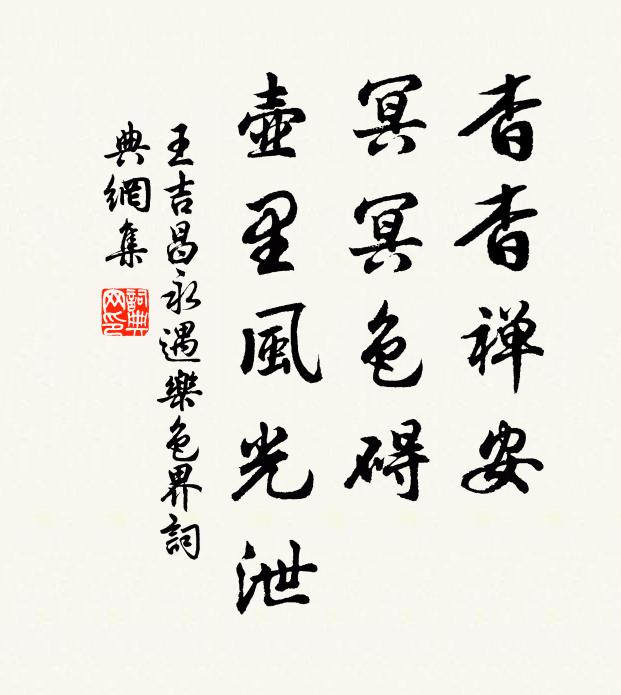 杳杳禅安
冥冥色碍
壺里風光泄
王吉昌永遇樂色界詞
典網集
詞典
网印